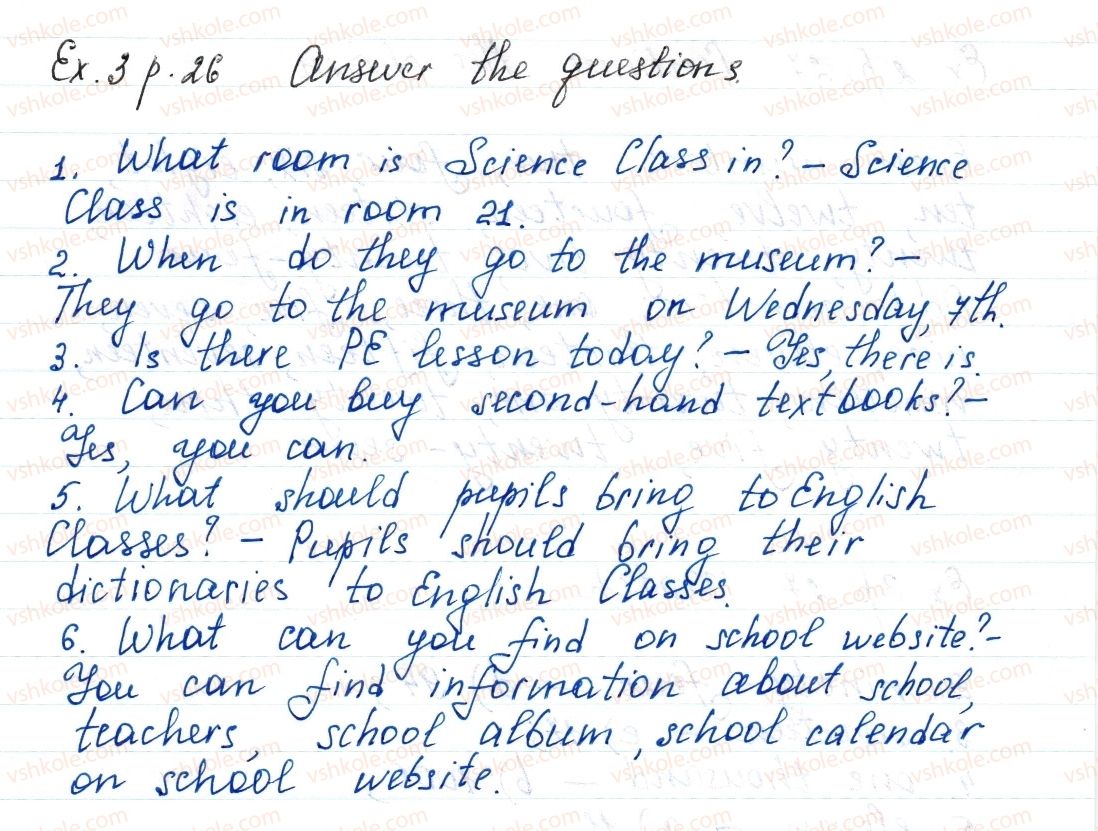 Ex. 3 p. 26 Answer the questions.
1. What room is Science Class in? – Science
Class is in room 21.
2. When do they go to the museum? –
They go to the museum on Wednesday, 7th.
3. Is there PE lesson today? – Yes, there is.
4. Can you buy second-hand textbooks? –
Yes, you can.
5. What should pupils bring to English
Classes? – Pupils should bring their
dictionaries to English Classes.
6. What can you find on school website? –
You can find information about school,
teachers, school album, school calendar
on school website.